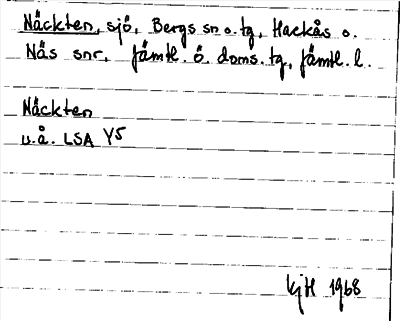 Näckten, sjö, Bergs sn o. tg, Hackås o.
Näs snr, Jämtl. ö. doms. tg, Jämtl. l.
Näckten
u.å. LSA Y5
KjH 1968